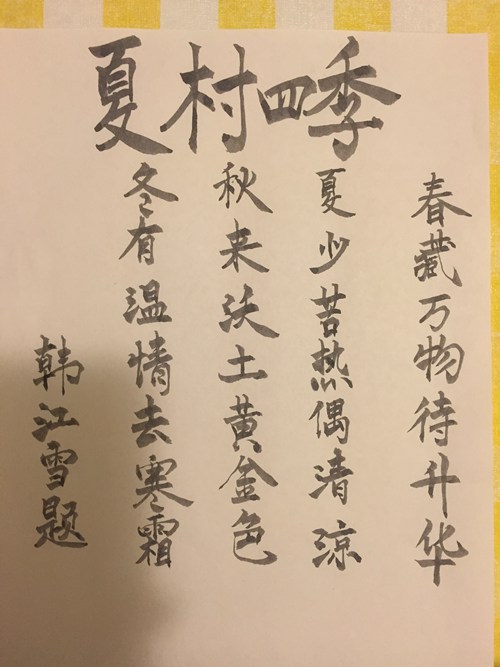 夏村四季
春藏万物待升华
夏少苦热偶清涼
秋来沃土黄金色
冬有温情去寒霜
韩江雪题